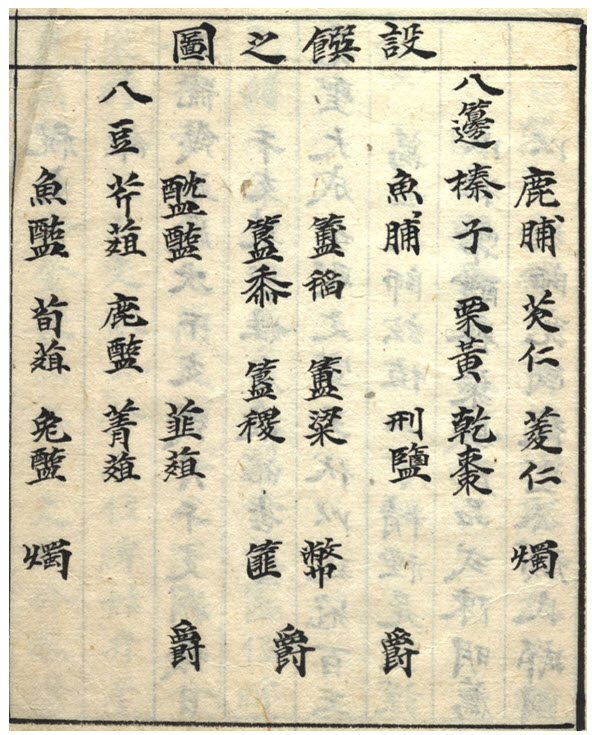 設饌之圖
鹿脯 芡仁 菱仁 燭
八籩 榛子 栗黃 乾棗
魚脯 刑鹽 爵
簠稻 簠粱 幣
爵
簋黍 簋稷 篚
醓醢 韮葅 爵
八豆 芹葅 鹿醢 菁葅
魚醢 荀葅 兔醢 燭